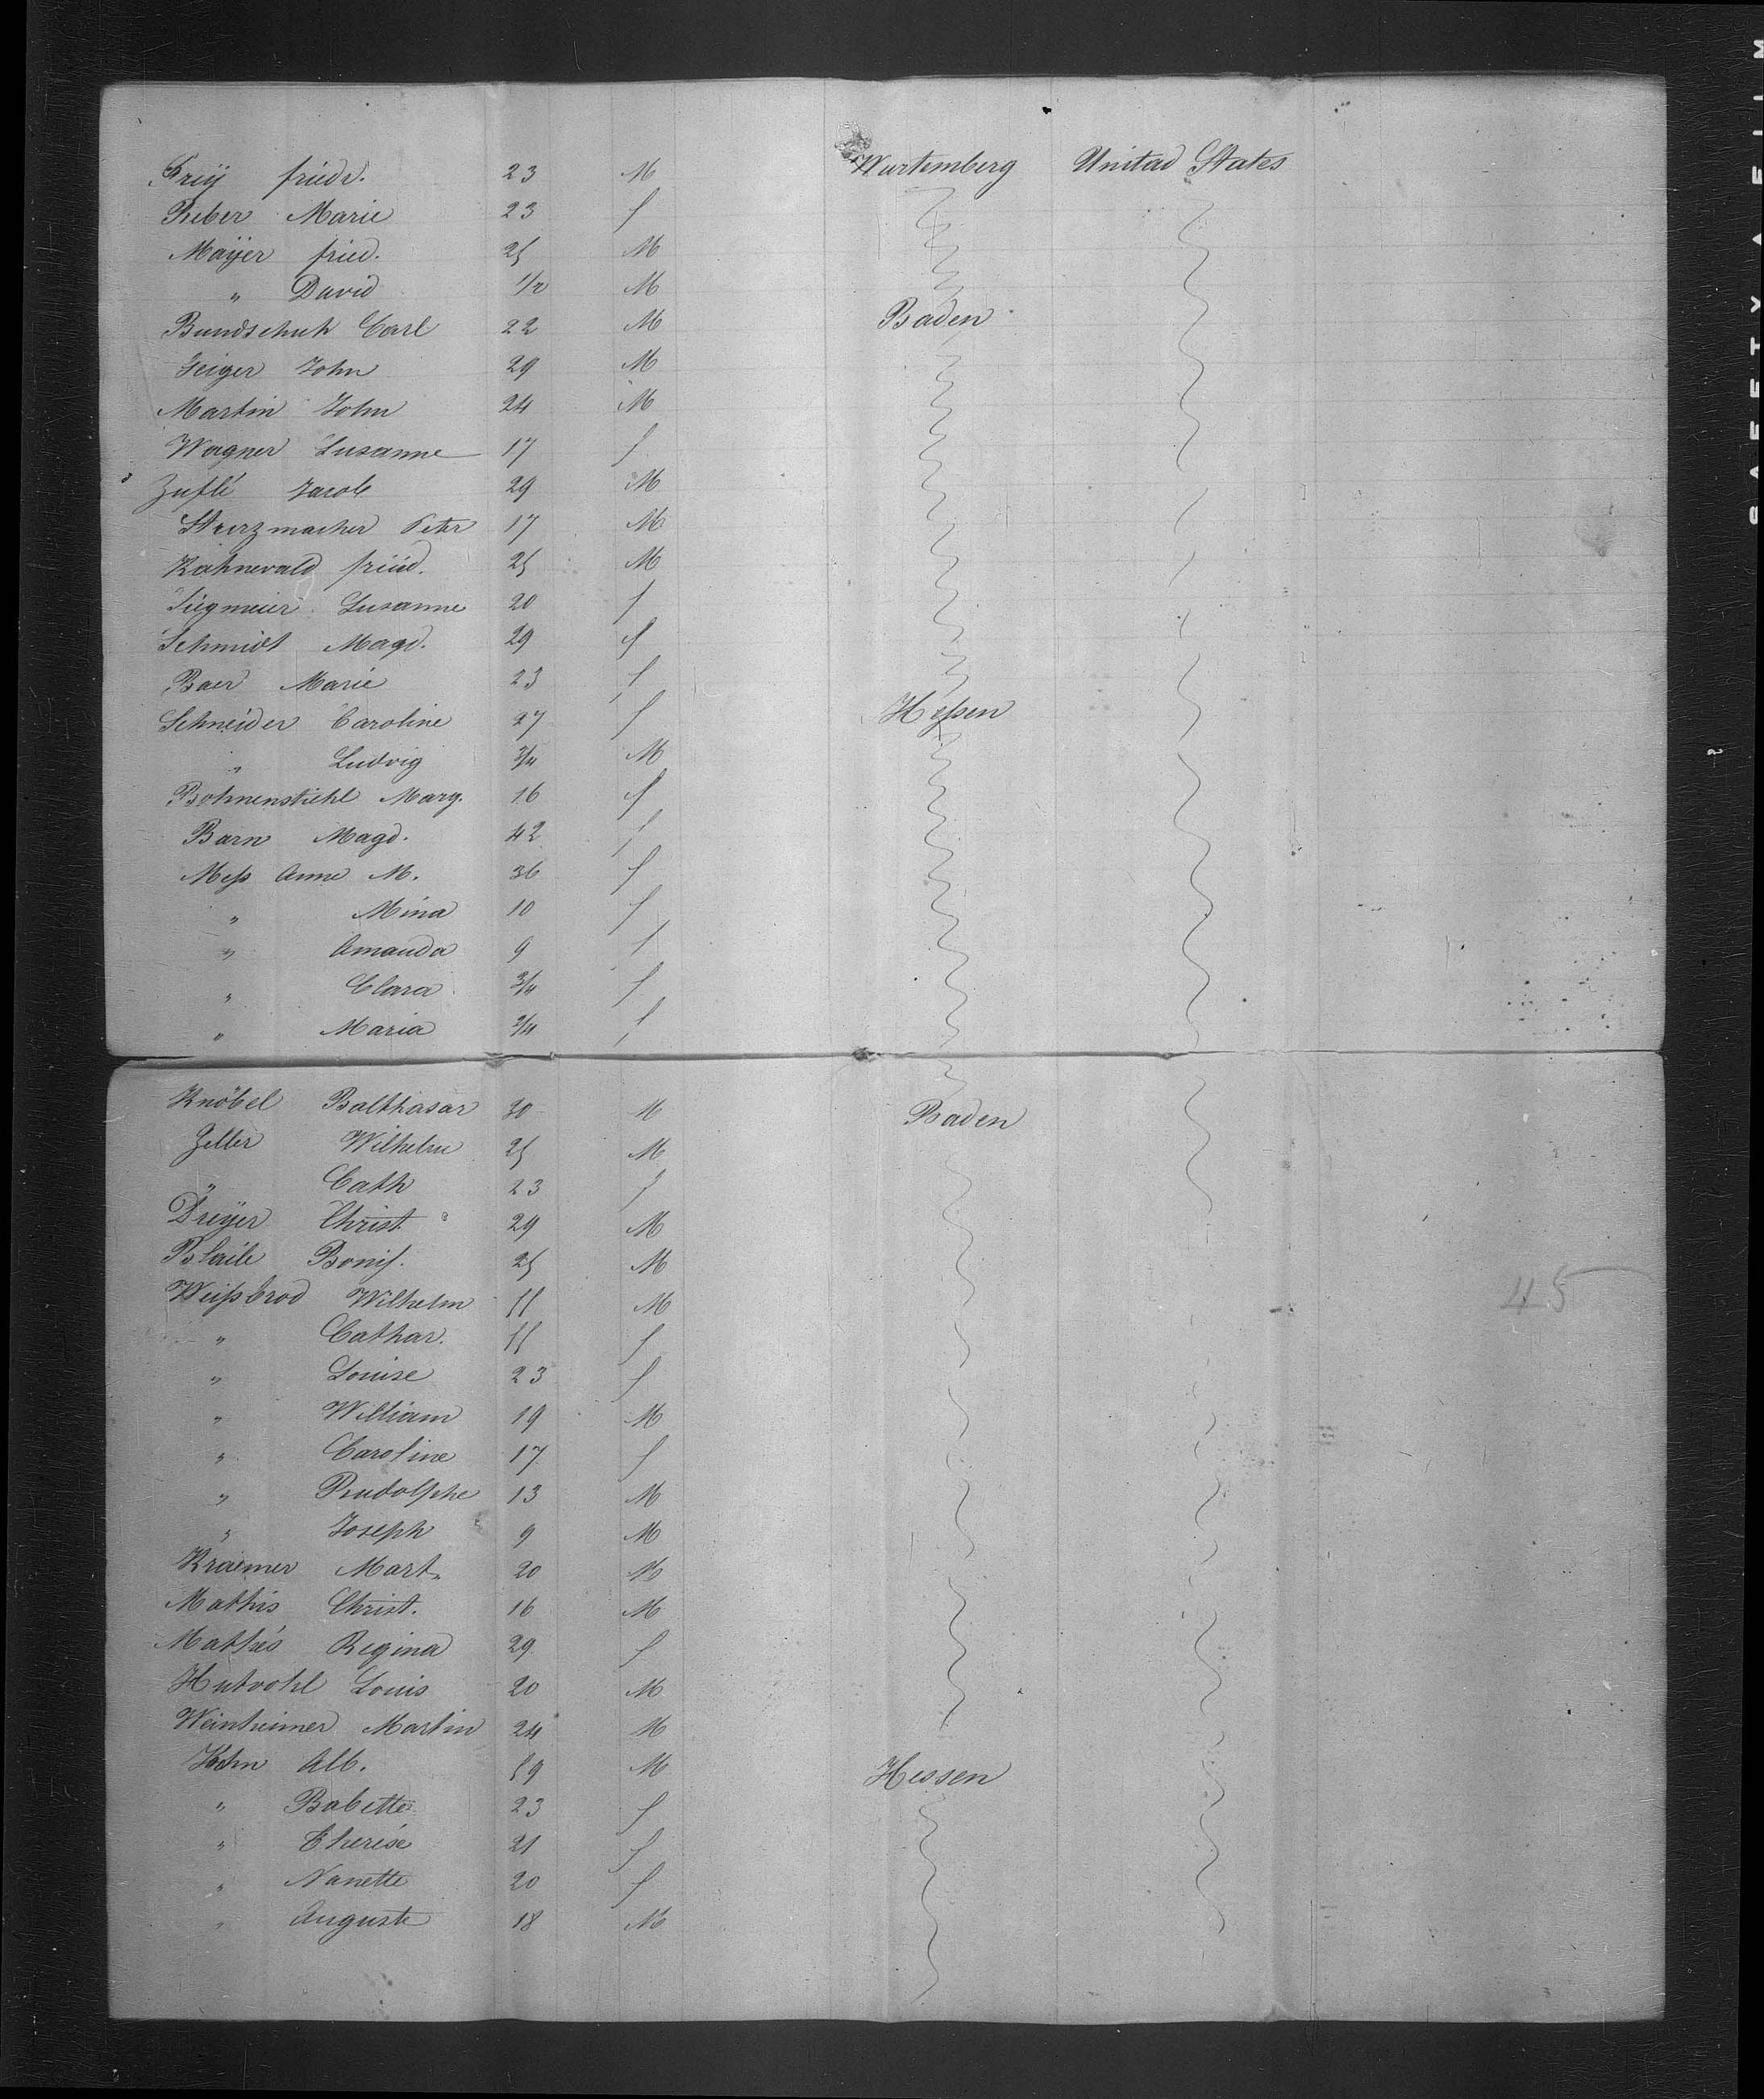 Freÿ friedr. 23 M Wurtemberg Unitad States
Reber Marie 23 f
Maÿer fried. 25 M
" David 1/2 M
Bundschuh Carl 22 M Baden
Geiger John 29 M
Martin John 24 M
Wagner Susanne 17 f
Zuflé Jacob 29 M
Sterzmacher Peter 17 M
Kohnevald fried. 25 M
Siegmeier Susanne 20 f
Schmidt Magd. 29 f
Baer Marie 23 f
Schneider Caroline 27 f Heſsen
" Ludvig 3/4 M
Bohnenstiehl Marg. 16 f
Barn Magd. 42 f
Meſs Anne M. 36 f
" Mina 10 f
" Amanda 9 f
" Clara 3/4 f
" Maria 3/4 f
Knöbel Balthasar 30 M Baden
Zeller Wilhelm 25 M
" Cath 23 f
Dreÿer Christ. 29 M
Blaile Bonif. 25 M
Weiſsbrod Wilhelm 55 M
" Cathar. 55 f
" Louise 23 f
" William 19 M
" Caroline 17 f
" Rudolphe 13 M
" Joseph 9 M
Kraemer Mart. 20 M
Mathis Christ. 16 M
Mathis Regina 29 f
Hutvohl Louis 20 M
Weinheimer Martin 24 M
Alb. 59 M Hessen
" Babette 23 f
" Therése 21 f
" Nanette 20 f
" Auguste 18 M
45
SAFETY FILM